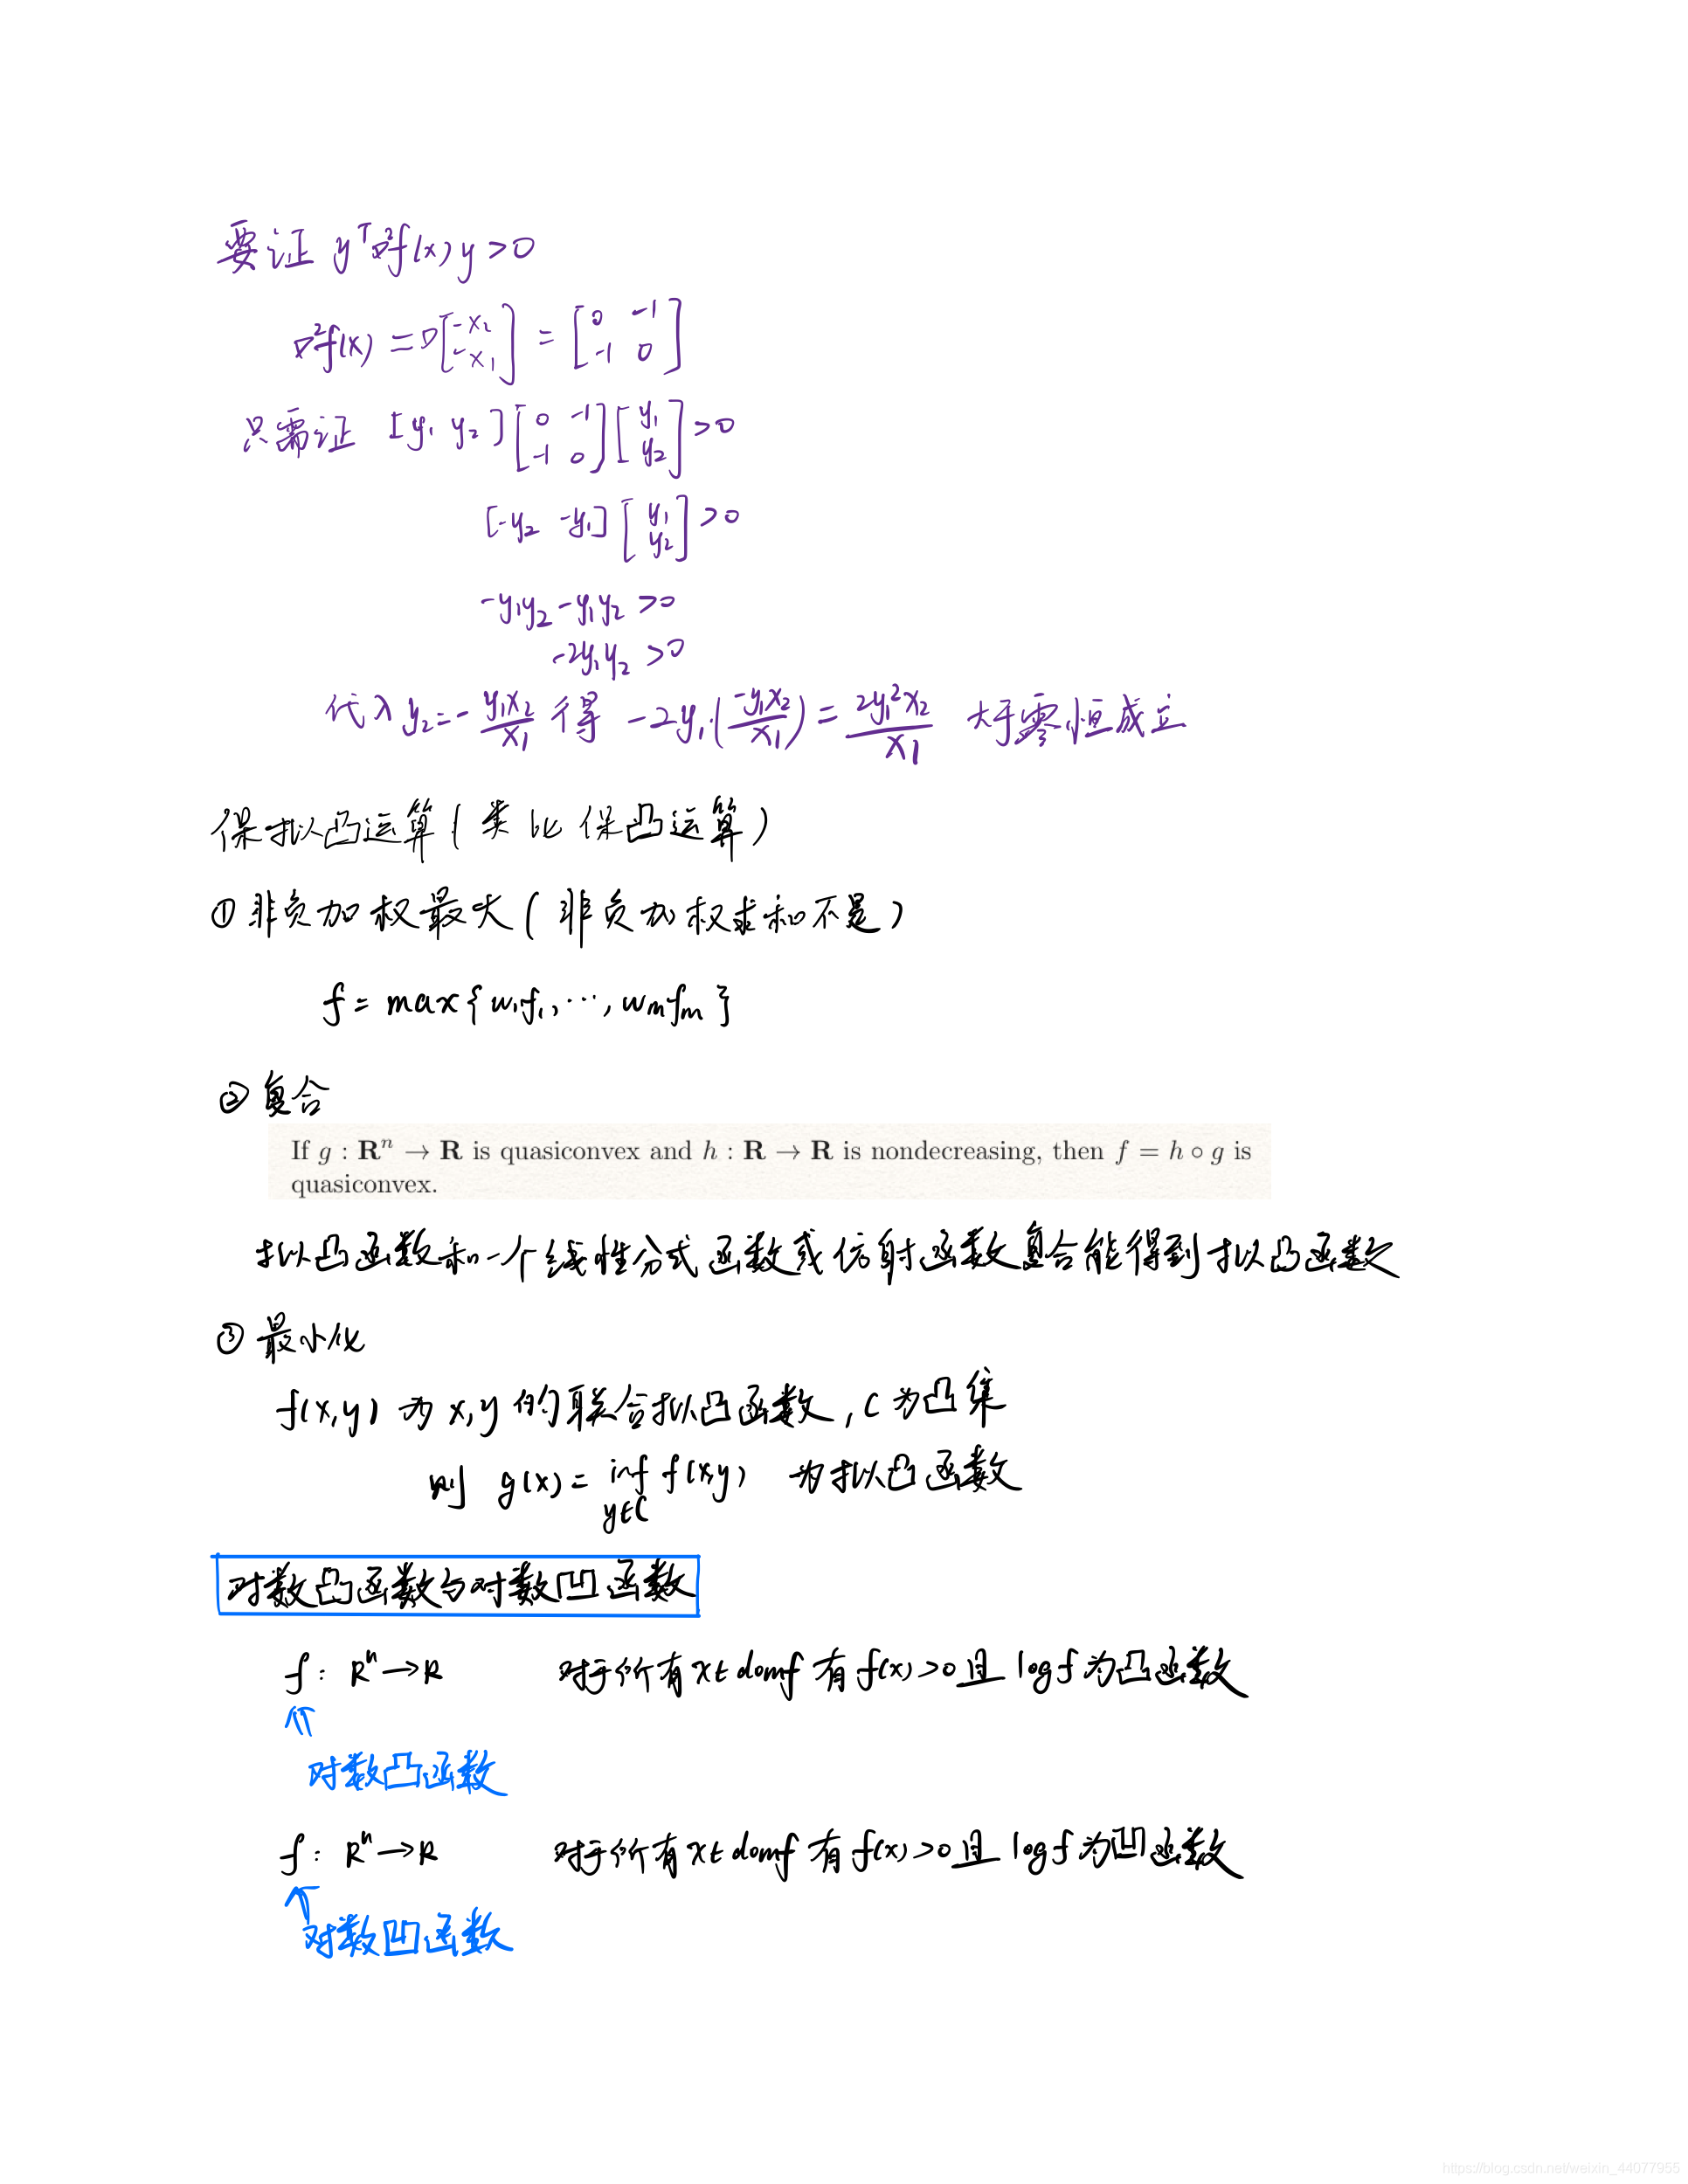 要证 yᵀ∇²f(x)y>0
∇²f(x) = ∇[-x₂ -x₁] = [0 -1; -1 0]
只需证 [y₁ y₂][0 -1; -1 0][y₁ y₂]>0
[-y₂ -y₁][y₁ y₂]>0
-y₁y₂-y₁y₂>0
-2y₁y₂>0
代入 y₂=-y₁x₂/x₁ 得 -2y₁·(-y₁x₂/x₁) = 2y₁²x₂/x₁ 大于零恒成立
保拟凸运算(类比保凸运算)
① 非负加权最大(非负加权求和不是)
f = max{w₁f₁,⋯,wₘfₘ}
② 复合
If g : Rⁿ → R is quasiconvex and h : R → R is nondecreasing, then f = h ∘ g is
quasiconvex.
拟凸函数和一个线性分式函数或仿射函数复合能得到拟凸函数
③ 最小化
f(x,y) 为 x,y 的联合拟凸函数, C为凸集
则 g(x) = inf f(x,y) 为拟凸函数
y∈C
对数凸函数与对数凹函数
f: Rⁿ→R 对于所有x∈domf有f(x)>0且logf为凸函数
对数凸函数
f: Rⁿ→R 对于所有x∈domf有f(x)>0且logf为凹函数
对数凹函数
https://blog.csdn.net/weixin_44077955